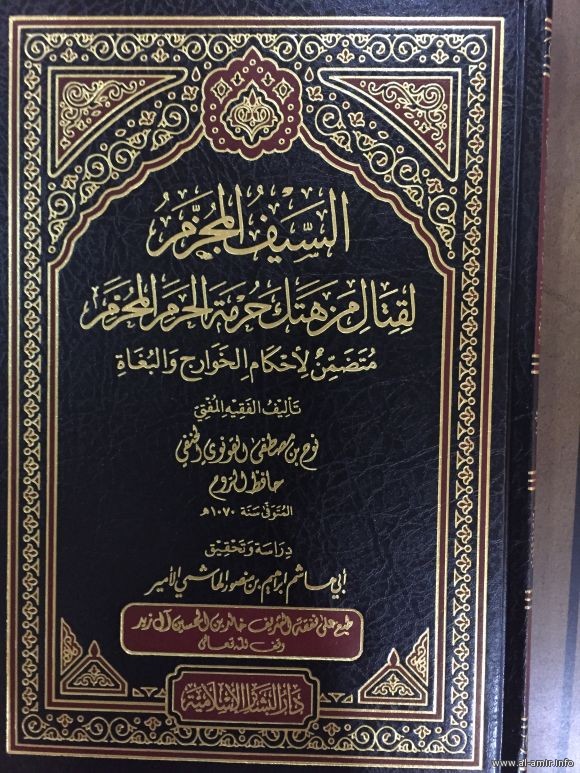 السَّيفُ المُجْزِمُ
لِقِتَالِ مَنْ هَتَكَ حُرْمَةَ الحَرَمِ المُحَرَّمِ
مُتَضَمِّنٌ لِأَحْكَامِ الخَوَارِجِ وَالبُغَاةِ
تَأليفُ الفَقِيهِ المُفْتِي
نوح بن مصطفى القونوي الحنفي
حافظ الروم
المُتَوَفَّى سَنَة ١٠٧٠هـ
دِرَاسَة وَتَحْقِيق
أبي هاشم إبراهيم بن منصور الهاشمي الأمير
طبع على نفقة الشريف خالد بن الحسين آل زيد
وقف لله تعالى
دار البشائر الإسلامية
www.al-amir.info